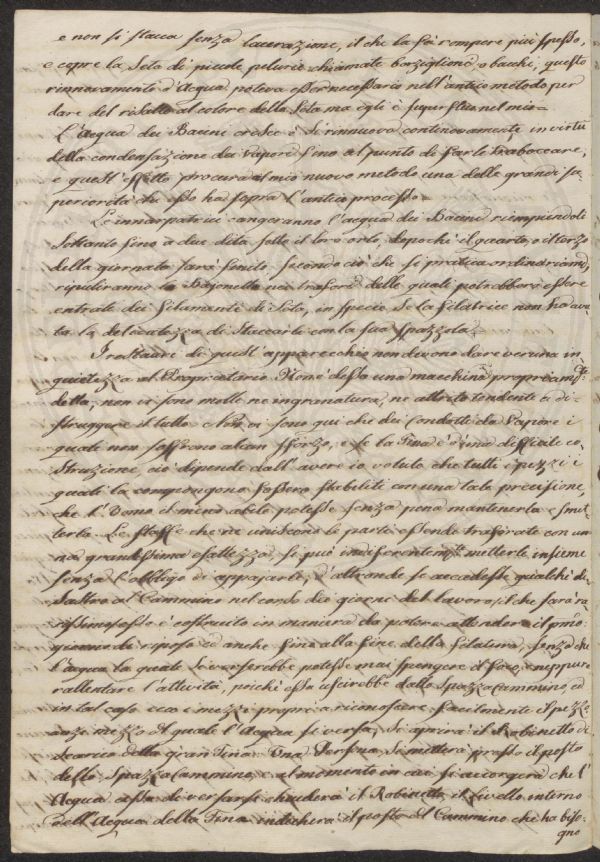 e non si stacca senza lacerazione, il che la fà rompere più spesso,
e copre la Seta di piccole pelurie chiamate borziglione o bacchi; questo
rinnovamento d'Acqua poteva esser necessario nell'antico metodo per
dare del risalto al colore della Seta ma egli è superfluo nel mio=
L'Acqua dei Bacini cresce e si rinnuova continovamente in virtù
della condensazione dei vapori sino al punto di farli traboccare,
e quest'effetto procura al mio nuovo metodo una delle grandi su-
periorità che esso ha sopra l'antico processo=
Le innarpatrici cangeranno l'acqua dei Bacini riempiendoli
soltanto sino a due dita sotto il loro orlo, dopochè il quarto, o il terzo
della giornata sarà finito, secondo ciò che si pratica ordinariamente,
ripuliranno la nei trafori delle quali potrebbero essere
entrate dei filamenti di Seta, in specie se la filatrice non ha avu-
ta la delicatezza di staccarli con la sua spazzola=
I restauri di quest'apparecchio non devono dare veruna in-
quietezza al Proprietario. Non è dessa una macchina propriam.te
detta, non vi sono molle ne ingranatura, ne attrito tendente a di-
struggere il tutto. Non vi sono qui che dei Condotti da Vapore i
quali non soffrono alcun sforzo, e se la Tina è d'una difficile co-
struzione, ciò dipende dall'avere io voluto che tutti i pezzi i
quali la compongono fossero stabiliti con una tale precisione,
che l'Uomo il meno abile potesse senza pena mantenerla e smet-
terla. Le staffe che ne uniscono le parti essendo traforate con un-
na grandissima esattezza, si può indifferentem.te metterle insieme
senza l'obbligo di appajarle; d'altronde se accadesse qualche di-
sastro al Cammino nel corso dei giorni del lavoro, il che sarà ra-
rissimo esso è costruito in maniera da potere attendere il pmo
giorno di riposo ed anche sino alla fine della filatura, senza che
l'acqua la quale si verserebbe potesse mai spengere il foco, e neppure
rallentare l'attività, poichè essa uscirebbe dallo Spazza Cammino, ed
in tal caso ecco i mezzi proprj a riconoscere facilmente il pezzo
anzi mezzo al quale l'Acqua si versa, si aprirà il Robinetto di
scarico della gran Tina. Una Persona si metterà presso il posto
dello Spazza Cammino, e al momento in cui si accorgerà che l'
Acqua cessa di versarsi chiuderà il Robinetto, il livello interno
dell'Acqua della Tina indicherà il posto del Cammino che ha biso-
gno